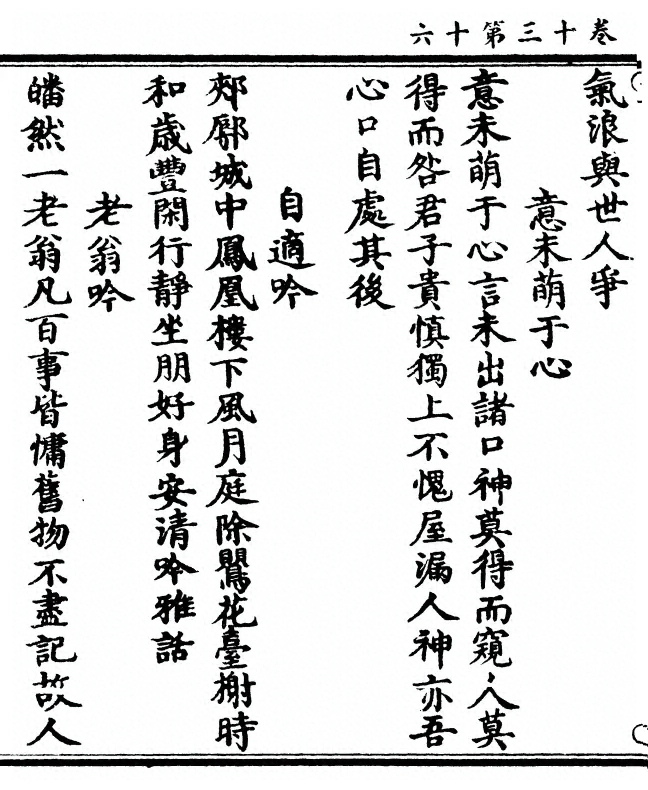 卷十三第十六
氣浪與世人爭
意未萌于心
意未萌于心言未出諸口神莫得而窺人莫
得而咎君子貴慎獨上不愧屋漏人神亦吾
心口自處其後
自適吟
郟鄏城中鳳凰樓下風月庭除鶯花臺榭時
和歲豐閑行靜坐朋好身安清吟雅話
老翁吟
皤然一老翁凡百事皆慵舊物不盡記故人